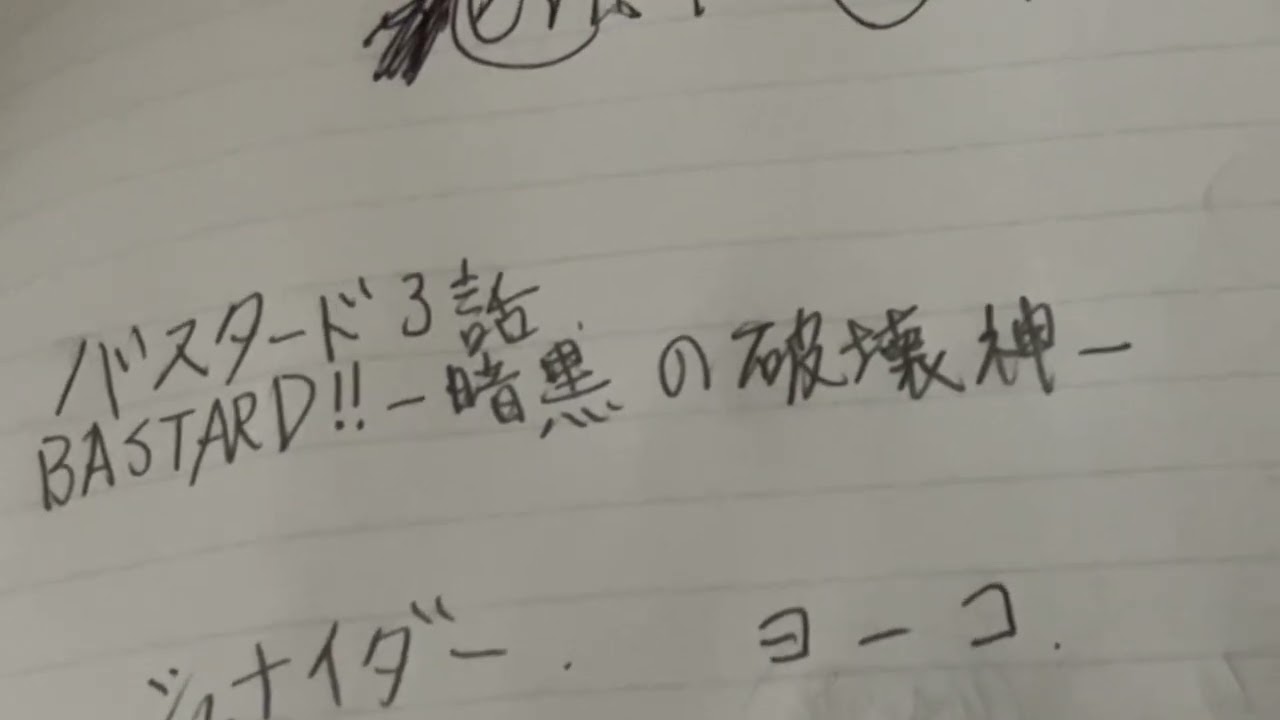 バスタード3話
BASTARD!!-暗黒の破壊神-
シュナイダー. ヨーコ.